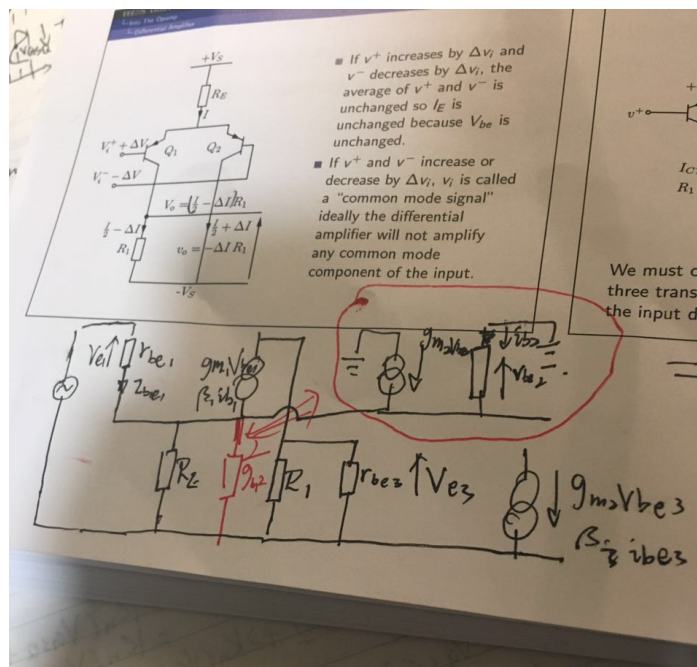 Into The Opamp
Differential Amplifier
+V_S
R_E
I
V_i^+ + ΔV
Q_1
Q_2
V_i^- − ΔV
I/2 − ΔI
R_1
I/2 + ΔI
v_o = −ΔI R_1
-V_S
■ If v^+ increases by Δv_i and
v^- decreases by Δv_i, the
average of v^+ and v^- is
unchanged so I_E is
unchanged because V_be is
unchanged.
■ If v^+ and v^- increase or
decrease by Δv_i, v_i is called
a "common mode signal"
ideally the differential
amplifier will not amplify
any common mode
component of the input.
+
v^+
I_C
R_1
We must c
three trans
the input d
r_be1
g_m2 V_be
i_b2
V_be2
R_1
r_be3
V_e3
g_m2 V_be3
i_be3